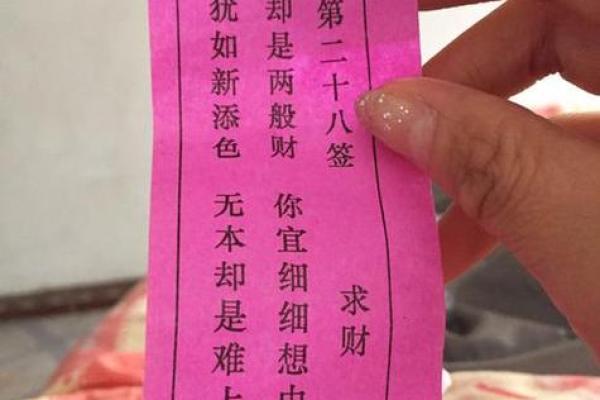 第二十八签 求财
却是两般财 你宜细细想
犹如新添色 无本却是难